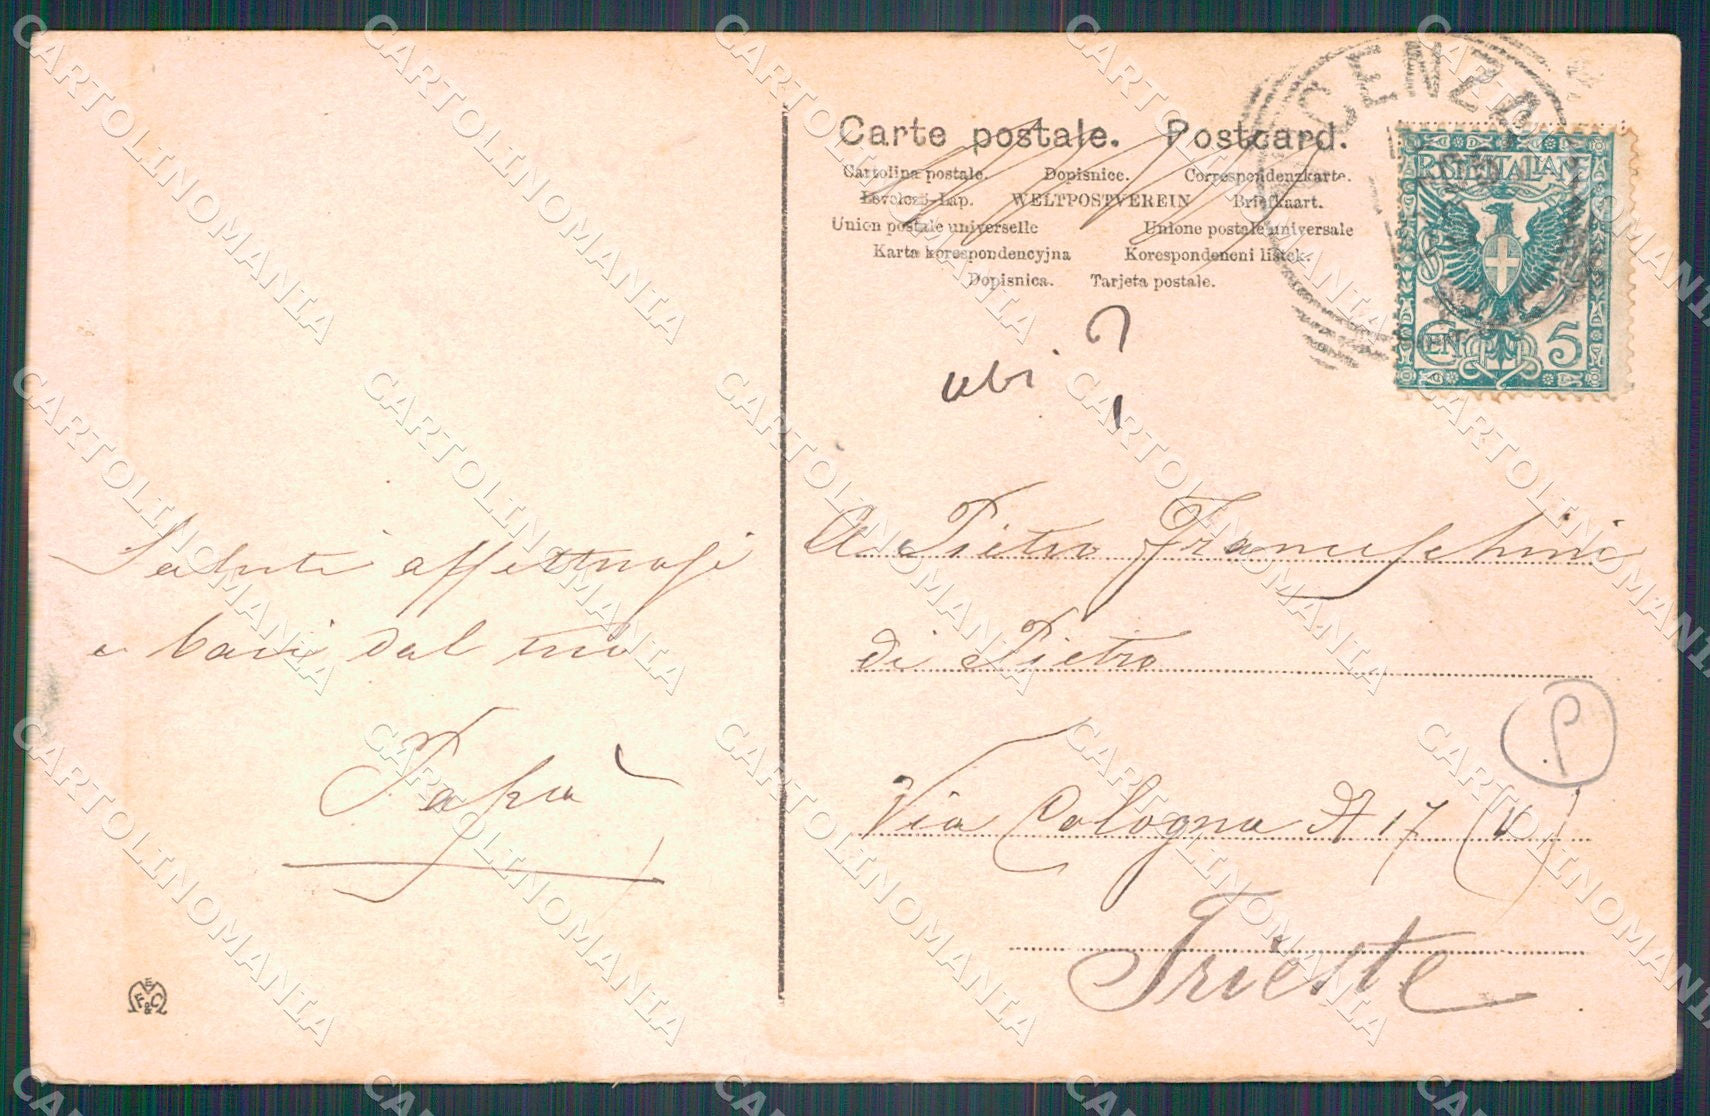 Carte postale. Postcard.
Cartolina postale. Dopisnice. Correspondenzkarte.
Levelező-Lap. WELTPOSTVEREIN Briefkaart.
Union postale universelle Unione postale universale
Karta korespondencyjna Korespondencni listek.
Dopisnica. Tarjeta postale.
CENZA
POSTE ITALIANE
CEN 5
ubi ?
Saluti affettuosi
e baci dal tuo
Papà
A Pietro Franceschini
di Pietro
Via Cologna N 17
Trieste
P
E
F & C
CARTOLINOMANIA